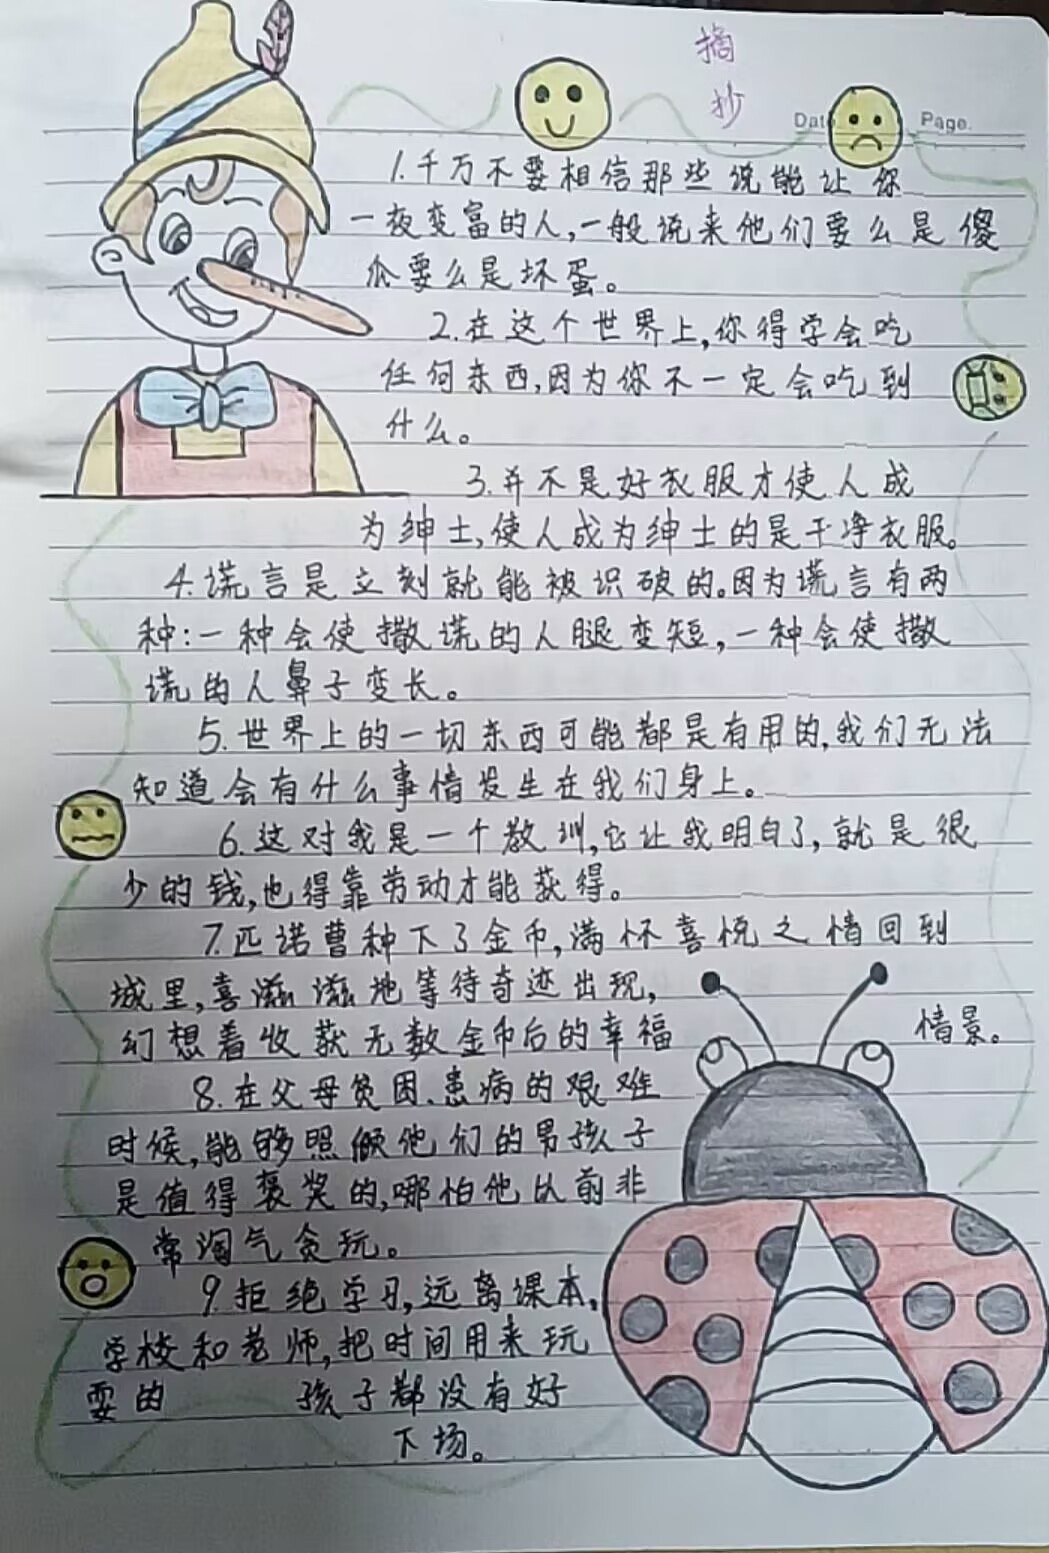 摘
抄
Date
Page.
1.千万不要相信那些说能让你
一夜变富的人,一般说来他们要么是傻
瓜要么是坏蛋。
2.在这个世界上,你得学会吃
任何东西,因为你不一定会吃到
什么。
3.并不是好衣服才使人成
为绅士,使人成为绅士的是干净衣服。
4.谎言是立刻就能被识破的。因为谎言有两
种:一种会使撒谎的人腿变短,一种会使撒
谎的人鼻子变长。
5.世界上的一切东西可能都是有用的,我们无法
知道会有什么事情发生在我们身上。
6.这对我是一个教训,它让我明白了,就是很
少的钱,也得靠劳动才能获得。
7.匹诺曹种下了金币,满怀喜悦之情回到
城里,喜滋滋地等待奇迹出现,
幻想着收获无数金币后的幸福 情景。
8.在父母贫困、患病的艰难
时候,能够照顾他们的男孩子
是值得褒奖的,哪怕他以前非
常淘气贪玩。
9.拒绝学习,远离课本,
学校和老师,把时间用来玩
耍的 孩子都没有好
下场。